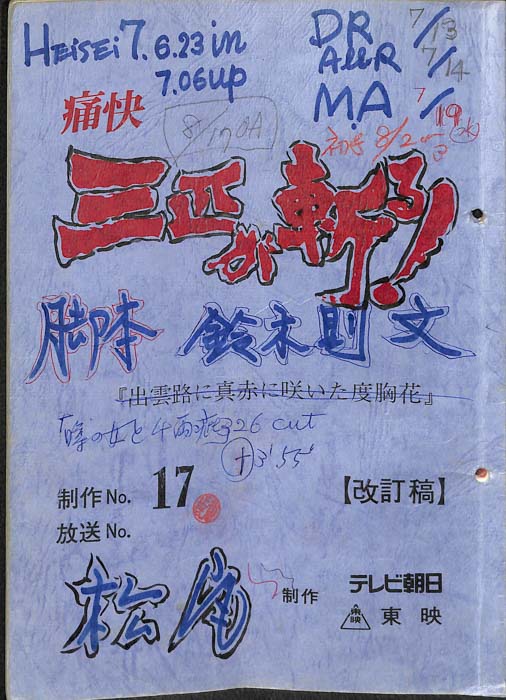 HEISEI 7. 6.23 in
7.06 up
DR 7/13
A&R 7/14
M.A 7/19 (水)
痛快
8/17 OA
三匹が斬る!
脚本 鈴木則文
『出雲路に真赤に咲いた度胸花』
26 cut
+3'55"
制作No. 17
【改訂稿】
放送No.
松尾
制作
テレビ朝日
東映 東映